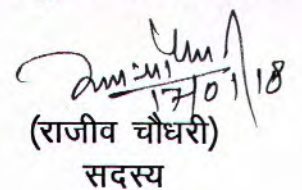 17/01/18
(राजीव चौधरी)
सदस्य